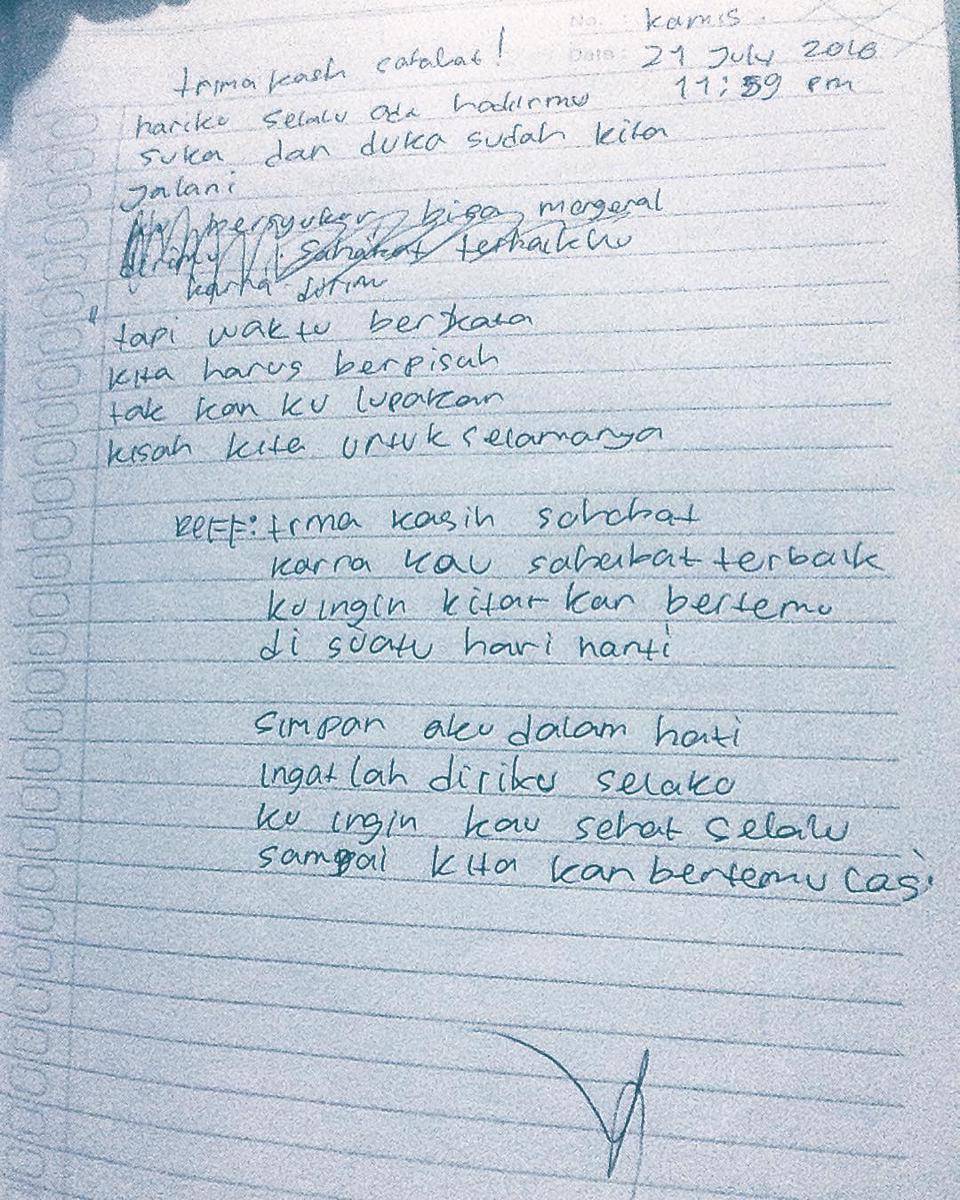 No. : kamis
Date : 21 July 2016
11:59 pm
trima kash sahabat!
hariku selalu ada hadirmu
suka dan duka sudah kita
Jalani
bersyukur bisa mengenal
sahabat terbaikku
karna
tapi waktu berkata
kita harus berpisah
tak kan ku lupakan
kisah kita untuk selamanya
REFF: trma kasih sahabat
karna kau sahabat terbaik
ku ingin kita kan bertemu
di suatu hari nanti
simpan aku dalam hati
ingatlah diriku selalu
ku ingin kau sehat selalu
sampai kita kan bertemu lagi